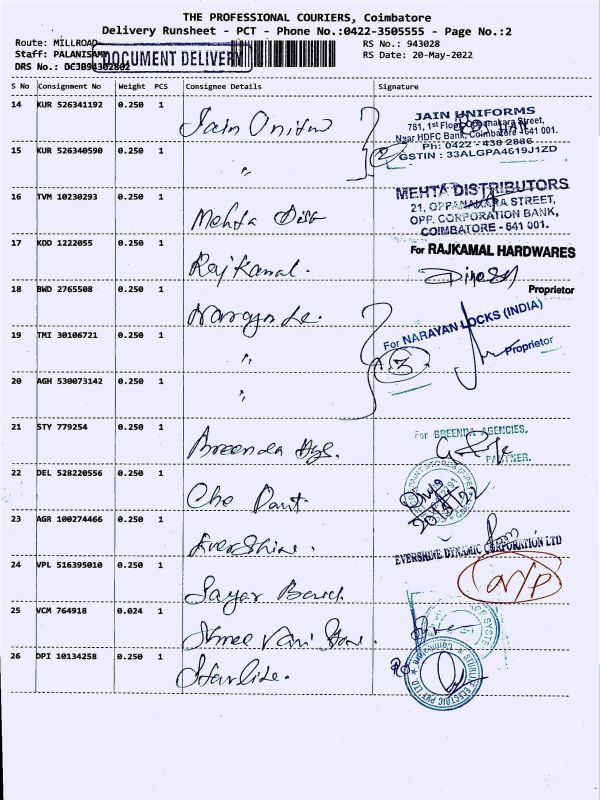 THE PROFESSIONAL COURIERS, Coimbatore
Delivery Runsheet - PCT - Phone No.:0422-3505555 - Page No.:2
Route: MILLROAD
RS No.: 943028
Staff: PALANISAMY
RS Date: 20-May-2022
DOCUMENT DELIVERY
DRS No.: DCJB94302802
S No Consignment No Weight PCS Consignee Details Signature
14 KUR 526341192 0.250 1 Jain Uniform
JAIN UNIFORMS
781, 1st Floor, Oppanakara Street,
Near HDFC Bank, Coimbatore - 641 001.
Ph: 0422 - 438 2886
GSTIN : 33ALGPA4619J1ZD
15 KUR 526340590 0.250 1 "
2
16 TVM 10230293 0.250 1 Mehta Dist
MEHTA DISTRIBUTORS
21, OPPANAKARA STREET,
OPP. CORPORATION BANK,
COIMBATORE - 641 001.
17 KOD 1222055 0.250 1 Rajkamal.
For RAJKAMAL HARDWARES
Dinesh
Proprietor
18 BWD 2765508 0.250 1 Narayan Lo.
For NARAYAN LOCKS (INDIA)
Proprietor
19 TMI 30106721 0.250 1 "
3
20 AGH 530073142 0.250 1 "
21 STY 779254 0.250 1 Breenda Ags.
For BREENDA AGENCIES,
PARTNER.
22 DEL 528220556 0.250 1 Che Paint.
20/5/22
23 AGR 100274466 0.250 1 Evershine.
EVERSHINE DYNAMIC CORPORATION LTD
24 VPL 516395010 0.250 1
25 VCM 764918 0.024 1 Shree Vari
26 DPI 10134258 0.250 1 Starlite.
STURLITE ELECTRIC PVT. LTD.